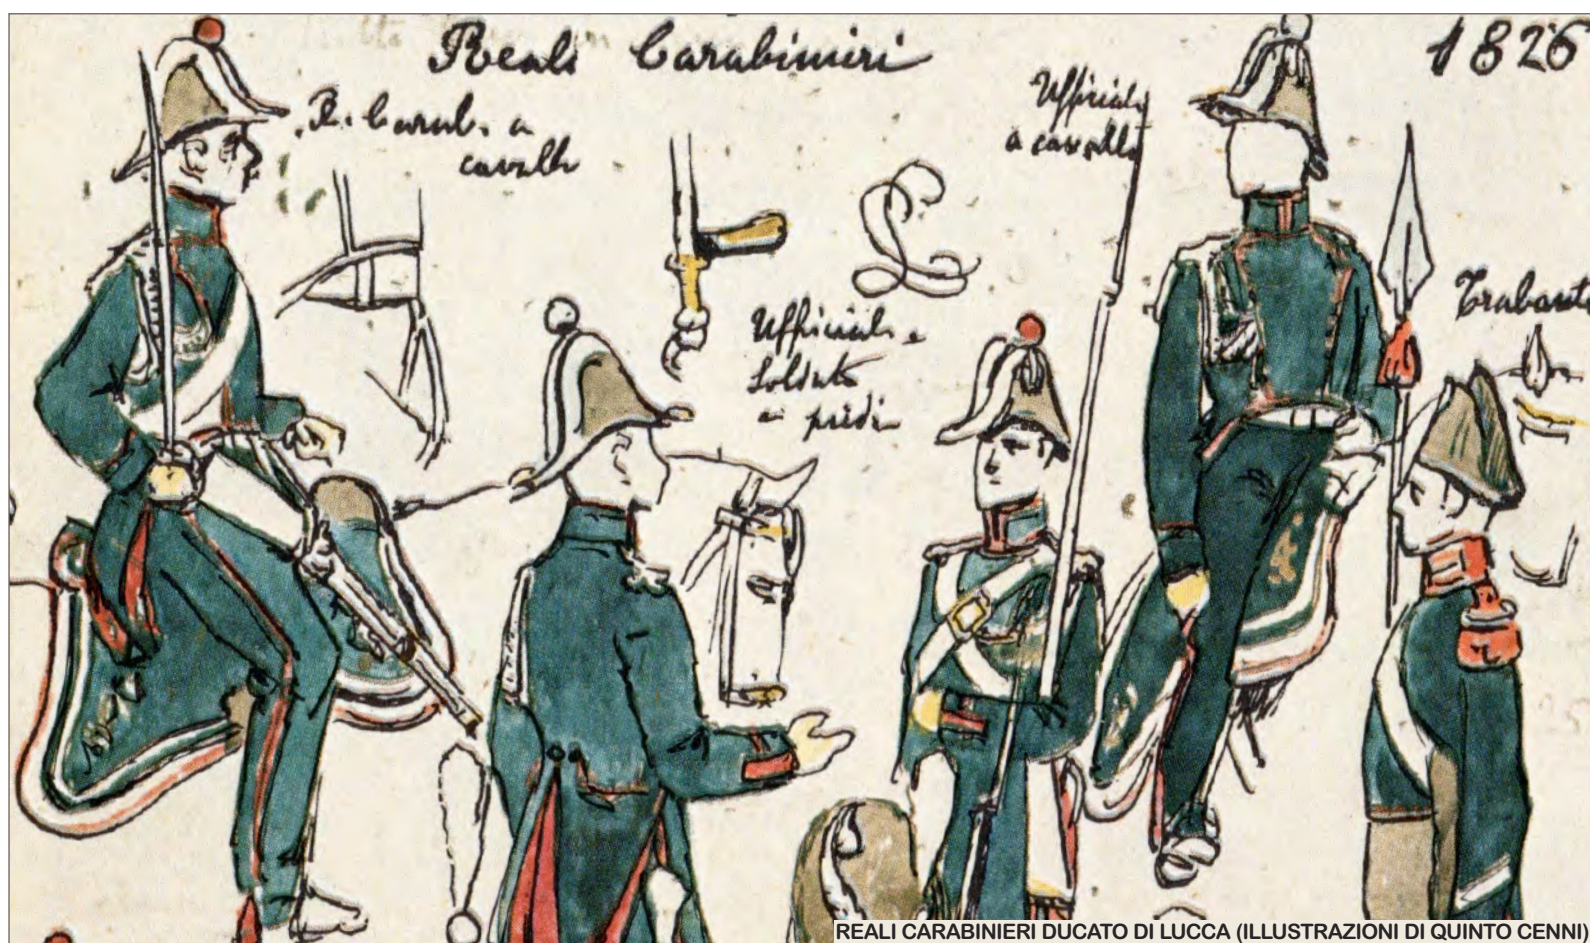 Reali Carabinieri
1826
R. Carab. a
cavallo
Ufficiale
a cavallo
Ufficiale e
Soldato
a piedi
Trabant
REALI CARABINIERI DUCATO DI LUCCA (ILLUSTRAZIONI DI QUINTO CENNI)